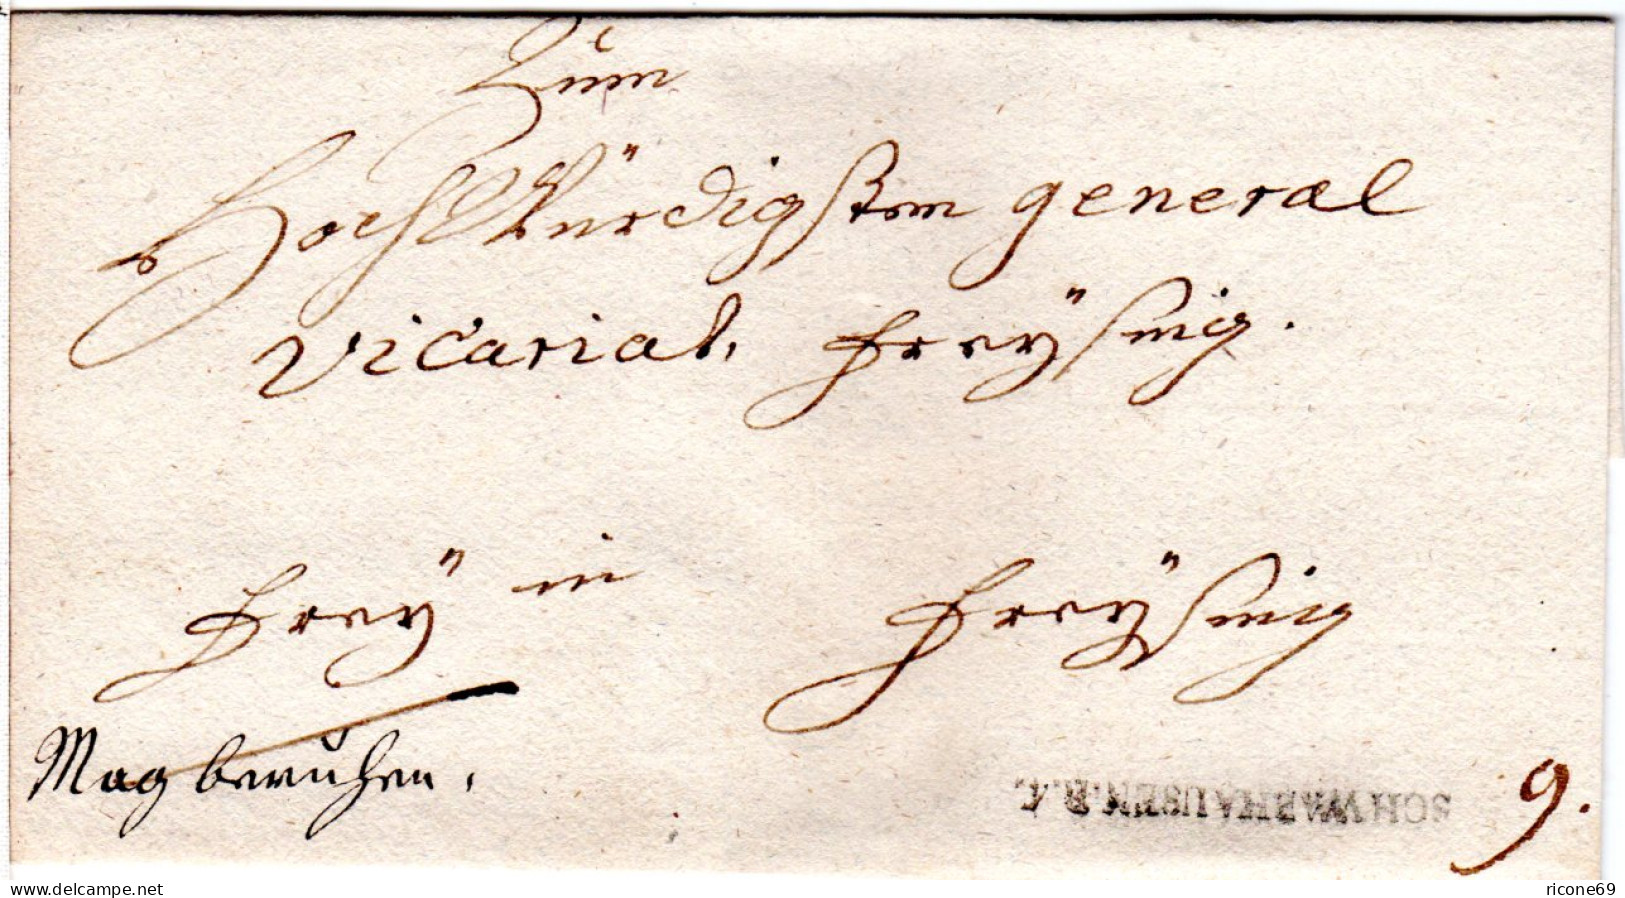 Zum
HochWürdigsten general
Vicariat, Freÿsing.
Freÿ in Freÿsing
Mag beruhen.
SCHWABHAUSEN.R.4.
9.
www.delcampe.net
ricone69